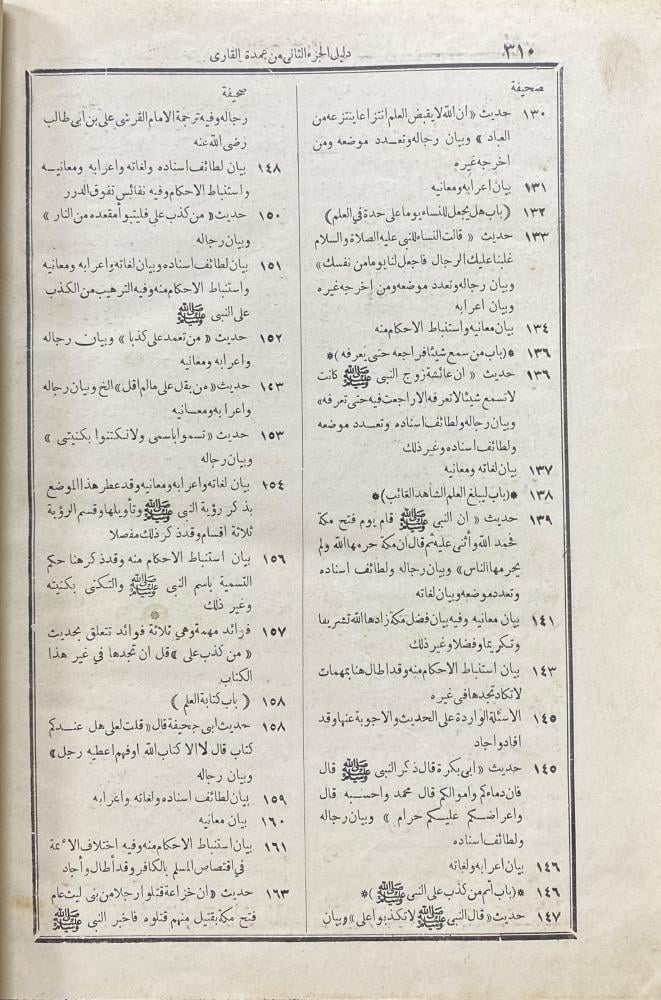 ٣١٠
دليل الجزء الثاني من عمدة القارى
صحيفة
١٣٠ حديث « ان الله لا يقبض العلم انتزاعا ينتزعه من
العباد » وبيان رجاله وتعدد موضعه ومن
اخرجه غيره
١٣١ بيان اعرابه ومعانيه
١٣٢ (باب هل يجعل للنساء يوما على حدة في العلم)
١٣٣ حديث « قالت النساء للنبي عليه الصلاة والسلام
غلبنا عليك الرجال فاجعل لنا يوما من نفسك»
وبيان رجاله وتعدد موضعه ومن اخرجه غيره
وبيان اعرابه
١٣٤ بيان معانيه واستنباط الاحكام منه
١٣٦ *(باب من سمع شيئا فراجعه حتى يعرفه)*
١٣٦ حديث « ان عائشة زوج النبي ﷺ كانت
لا تسمع شيئا لا تعرفه الا راجعت فيه حتى تعرفه»
وبيان رجاله ولطائف اسناده وتعدد موضعه
ولطائف اسناده وغير ذلك
١٣٧ بيان لغاته ومعانيه
١٣٨ *(باب ليبلغ العلم الشاهد الغائب)*
١٣٩ حديث « ان النبي ﷺ قام يوم فتح مكة
فحمد الله وأثنى عليه ثم قال ان مكة حرمها الله ولم
يحرمها الناس» وبيان رجاله ولطائف اسناده
وتعدد موضعه وبيان لغاته
١٤١ بيان معانيه وفيه بيان فضل مكة زادها الله تشريفا
وتكريما وفضلا وغير ذلك
١٤٣ بيان استنباط الاحكام منه وقد اطال هنا بمهمات
لا تكاد تجدها في غيره
١٤٥ الاسئلة الواردة على الحديث والاجوبة عنها وقد
افاد واجاد
١٤٥ حديث « ابى بكرة قال ذكر النبي ﷺ قال
فان دماءكم واموالكم قال محمد واحسبه قال
واعراضكم عليكم حرام » وبيان رجاله
ولطائف اسناده
١٤٦ بيان اعرابه ولغاته
١٤٦ *(باب أثم من كذب على النبي ﷺ)*
١٤٧ حديث « قال النبي ﷺ لا تكذبوا على » وبيان
صحيفة
رجاله وفيه ترجمة الامام القرشى على بن ابى طالب
رضى الله عنه
١٤٨ بيان لطائف اسناده ولغاته واعرابه ومعانيه
واستنباط الاحكام وفيه نفائس تفوق الدرر
١٥٠ حديث « من كذب على فليتبوأ مقعده من النار »
وبيان رجاله
١٥١ بيان لطائف اسناده وبيان لغاته واعرابه ومعانيه
واستنباط الاحكام منه وفيه الترهيب من الكذب
على النبي ﷺ
١٥٢ حديث « من تعمد على كذبا » وبيان رجاله
واعرابه ومعانيه
١٤٣ حديث « من يقل على مالم اقل» الخ وبيان رجاله
واعرابه ومعانيه
١٥٣ حديث « تسموا باسمى ولا تكتنوا بكنيتى »
وبيان رجاله
١٥٤ بيان لغاته واعرابه ومعانيه وقد عطر هذا الموضع
بذكر رؤية النبي ﷺ وتأويلها وقسم الرؤية
ثلاثة اقسام وقد ذكر ذلك مفصلا
١٥٦ بيان استنباط الاحكام منه وقد ذكر هنا حكم
التسمية باسم النبي ﷺ والتكنى بكنيته
وغير ذلك
١٥٧ فوائد مهمة وهي ثلاثة فوائد تتعلق بحديث
« من كذب على » قل ان تجدها في غير هذا
الكتاب
١٥٨ ( باب كتابة العلم )
١٥٨ حديث ابى جحيفة قال « قلت لعلى هل عندكم
كتاب قال لا الا كتاب الله او فهم اعطيه رجل »
وبيان رجاله
١٥٩ بيان لطائف اسناده ولغاته واعرابه
١٦٠ بيان معانيه
١٦١ بيان استنباط الاحكام منه وفيه اختلاف الأئمة
في اقتصاص المسلم بالكافر وقد أطال وأجاد
١٦٣ حديث « ان خزاعة قتلوا رجلا من بنى ليث عام
فتح مكة بقتيل منهم قتلوه فاخبر النبي ﷺ